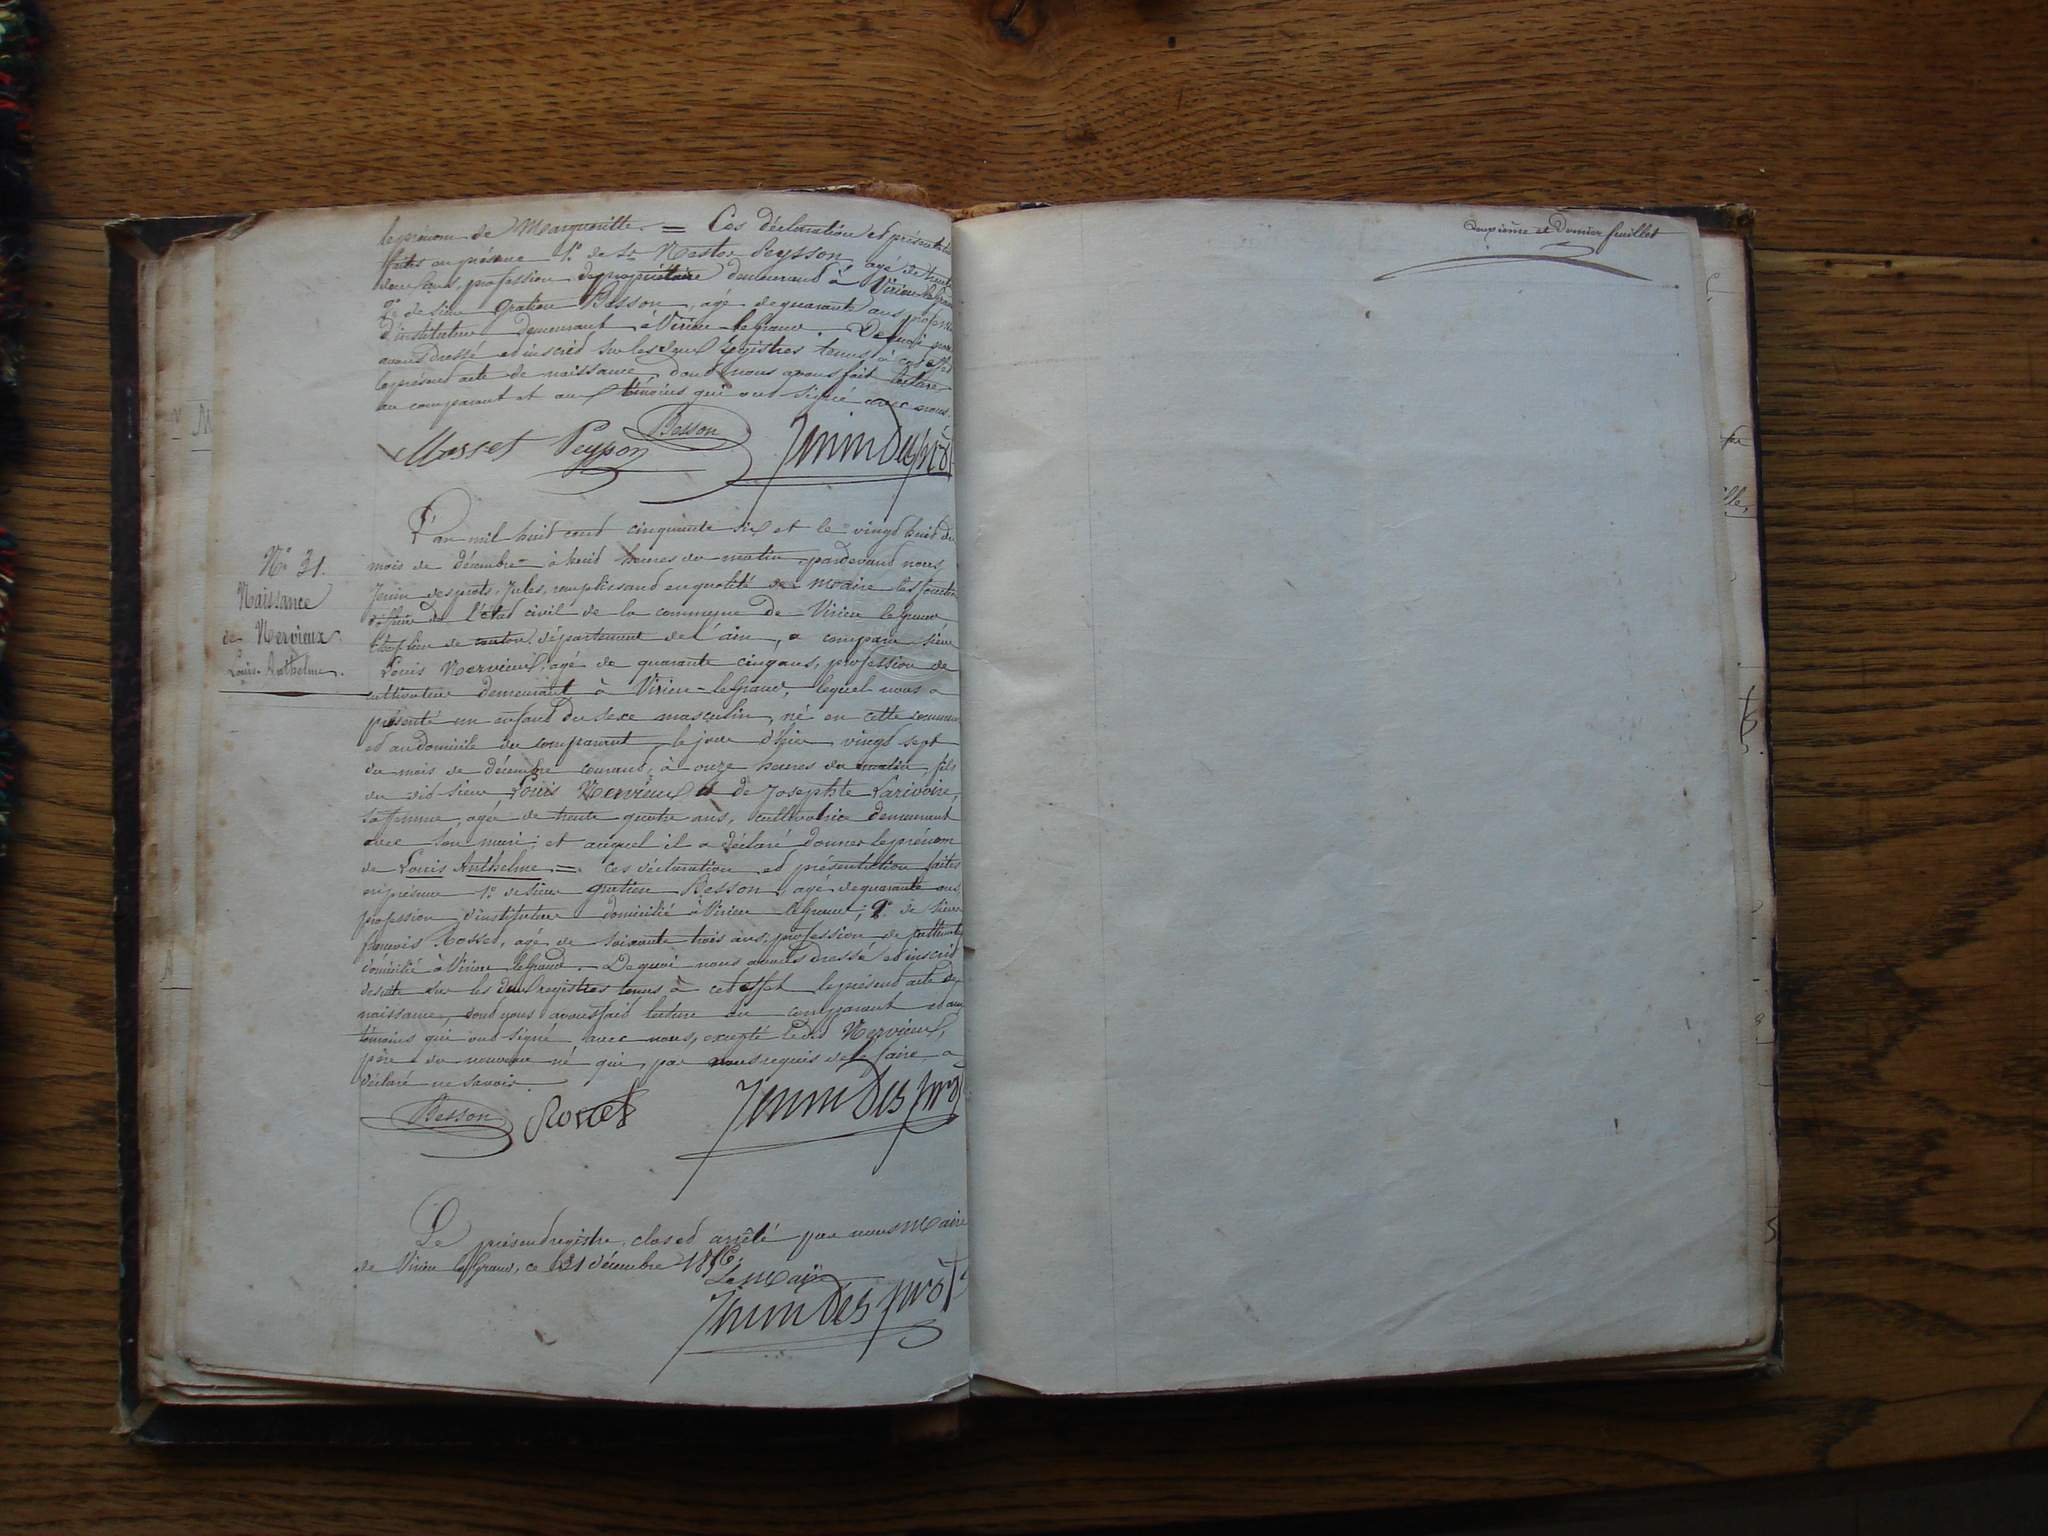 le prénom de Marguerite. = Ces déclaration et présentation
faites en présence 1° de Sr Nestor Peysson, agé de trente
deux ans, profession de propriétaire demeurant à Virieu le Grand
2° de sieur Gratien Besson, agé de quarante ans profession
d'instituteur demeurant à Virieu-le-Grand. De quoi nous
avons dressé et inscrit sur les deux registres tenus à cet effet
le présent acte de naissance, dont nous avons fait lecture
au comparant et aux témoins qui ont signé avec nous.
Besson
Peysson
Jenin Desprost
L'an mil huit cent cinquante six et le vingt huit du
N° 31.
Naissance
de Nervieux
Louis-Anthelme.
mois de décembre à huit heures du matin, pardevant nous,
Jenin des prots, Jules, remplissant en qualité de maire les fonctions
d'officier de l'état civil de la commune de Virieu le Grand
chef lieu de canton, département de l'ain, a comparu sieur
Louis Nervieux, agé de quarante cinq ans, profession de
cultivateur demeurant à Virieu-le Grand, lequel nous a
présenté un enfant du sexe masculin, né en cette commune
et au domicile du comparant, le jour d'hier vingt sept
du mois de décembre courant, à onze heures du matin, fils
du dit sieur Louis Nervieux et de Josephte Larivoire,
sa femme, agée de trente quatre ans, cultivatrice demeurant
avec son mari; et auquel il a déclaré donner le prénom
de Louis Anthelme =. Ces déclaration et présentation faites
en présence 1° de sieur Gratien Besson, agé de quarante ans
profession d'instituteur domicilié à Virieu le Grand; 2° de sieur
françois Rosset, agé de soixante trois ans, profession de
domicilié à Virieu le Grand. De quoi nous avons dressé et inscrit
de suite sur les deux registres tenus à cet effet le présent acte de
naissance, dont nous avons fait lecture au comparant et aux
témoins qui ont signé avec nous, excepté le dit Nervieux,
père du nouveau né qui, par nous requis de le faire a
déclaré ne savoir.
Besson Rosset Jenin des prost
Le présent registre, clos et arrêté par nous Maire
de Virieu le Grand, ce 31 décembre 1856.
Le Maire
Jenin des prost
onzième et Dernier feuillet